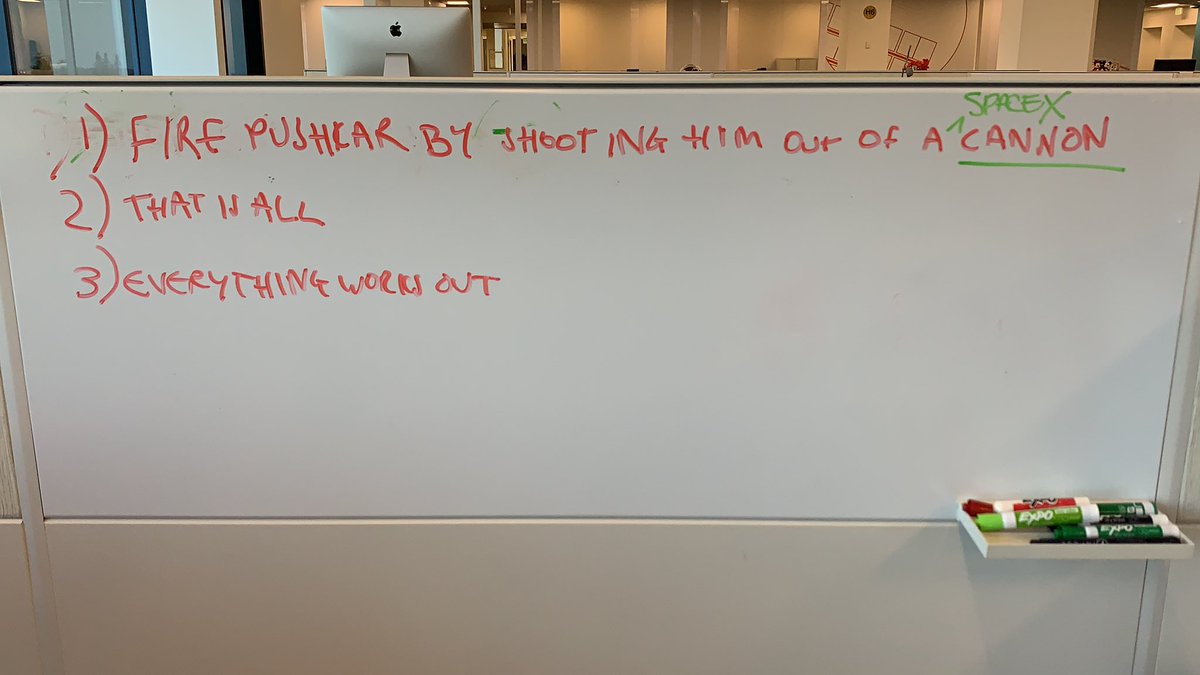 SPACEX
1) FIRE PUSHKAR BY SHOOTING HIM OUT OF A ^ CANNON
2) THAT IS ALL
3) EVERYTHING WORKS OUT
EXPO
EXPO
EXPO